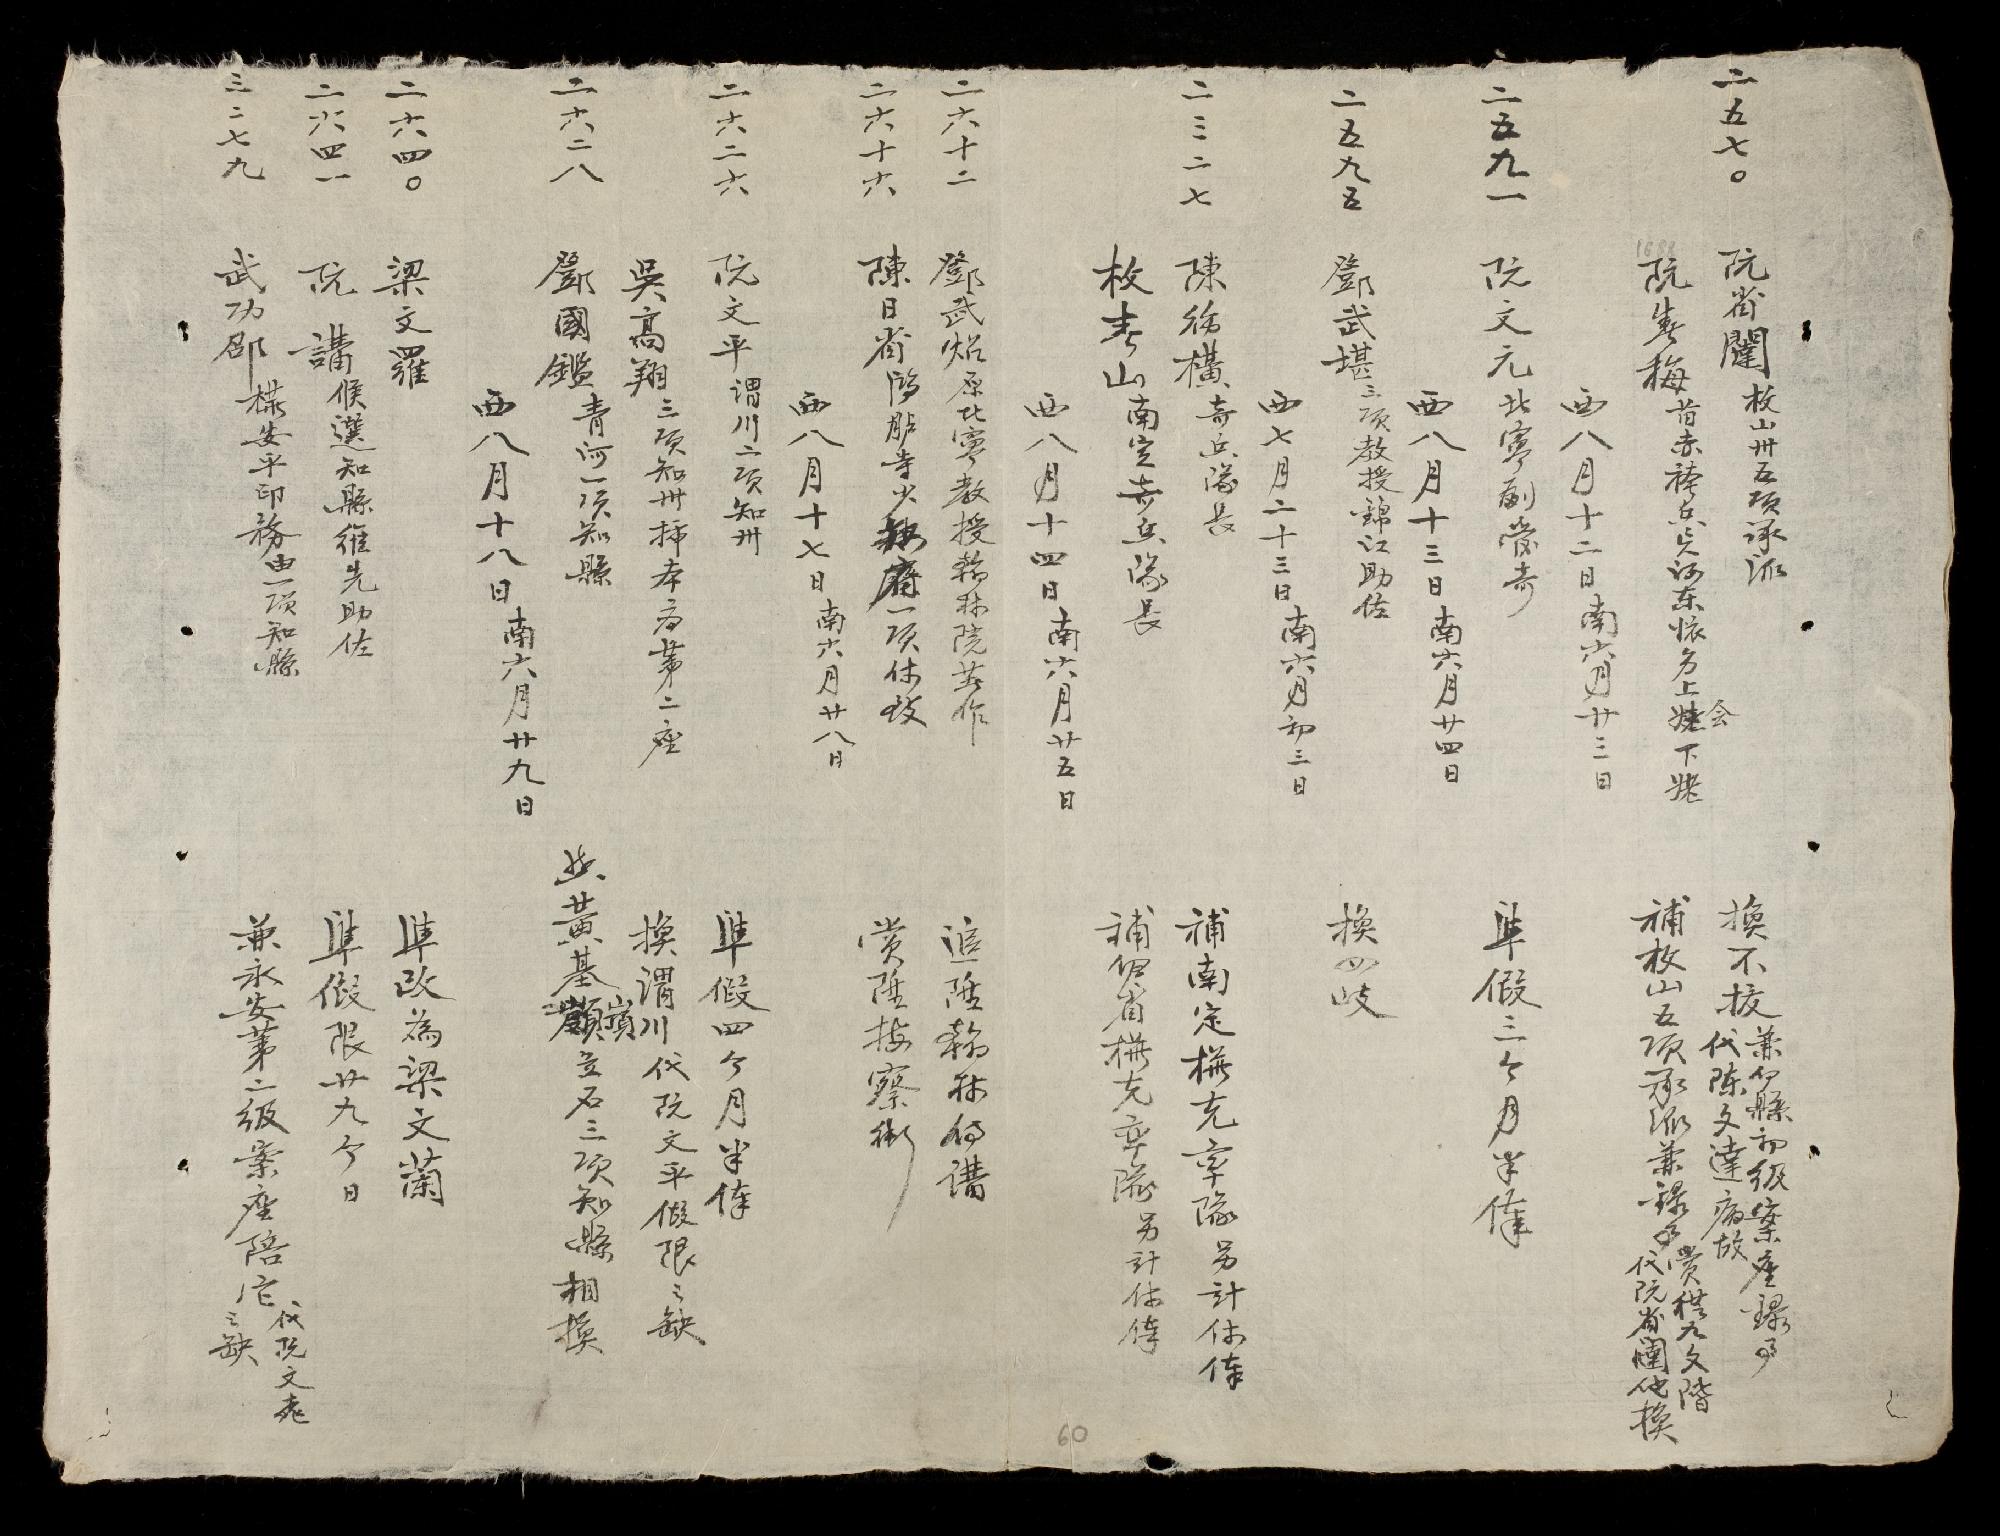 二五七〇
阮省闈
枚山州五項承派
換不拔
兼伊縣初級案座錄事
代陳文達病故
1686
阮隽梅
昔赤袴兵 河東懷安上
会
下姥
補枚山五項承派兼錄事
賞 九文階
代阮省闈他換
西八月十二日南六月廿三日
二五九一
阮文元
北寧副管奇
準假三个月半俸
西八月十三日南六月廿四日
二五九五
鄧武堪
三項教授錦江助佐
換四岐
西七月二十三日南六月初三日
二三二七
陳 橫
奇兵隊長
補南定 充率隊另計休俸
枚春山
南定奇兵隊長
補伊省 充率隊另計休俸
西八月十四日南六月廿五日
二六十二
鄧武炤
原北寧教授翰林院著作
追陞翰林侍講
二六十六
陳日省
鴻臚寺少 一項休致
賞陞按察銜
西八月十七日南六月廿八日
二六二六
阮文平
謂川二項知州
準假四个月半俸
吳高翔
三項知州 本府第二座
換謂川代阮文平假限之缺
二六二八
鄧國鑑
青河一項知縣
與黃基
嶺
立石三項知縣相換
西八月十八日南六月廿九日
二六四〇
梁文羅
準改為梁文蘭
二六四一
阮講
候選知縣維先助佐
準假限廿九个日
三二七九
武功邵
安平印務由一項知縣
兼永安第二級案座陪
代阮文
之缺
60